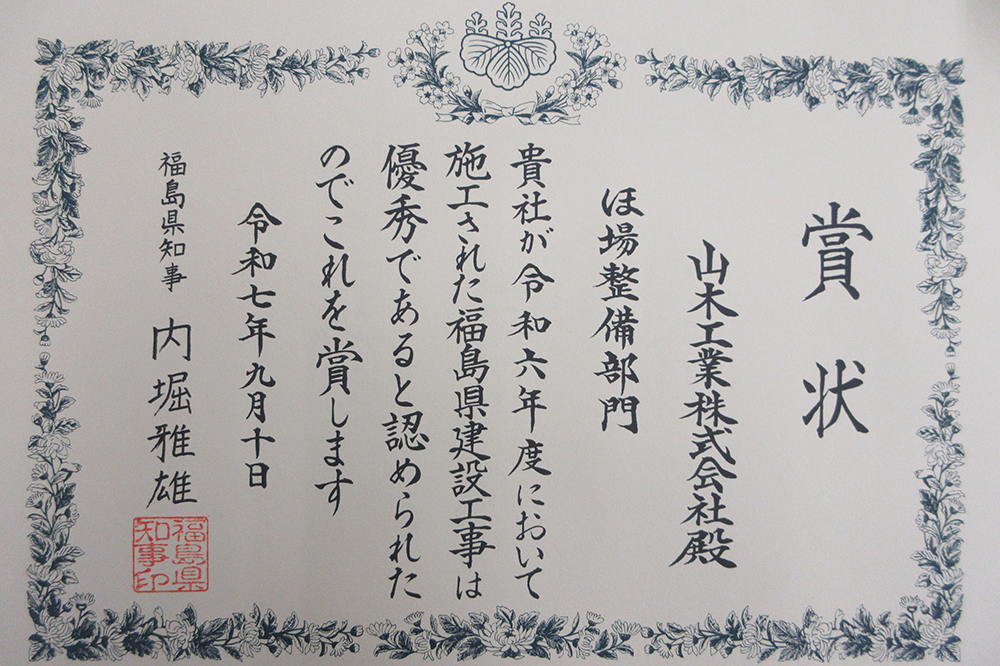 賞状
山木工業株式会社殿
ほ場整備部門
貴社が令和六年度において
施工された福島県建設工事は
優秀であると認められた
のでこれを賞します
令和七年九月十日
福島県知事 内堀雅雄
福島県
知事印